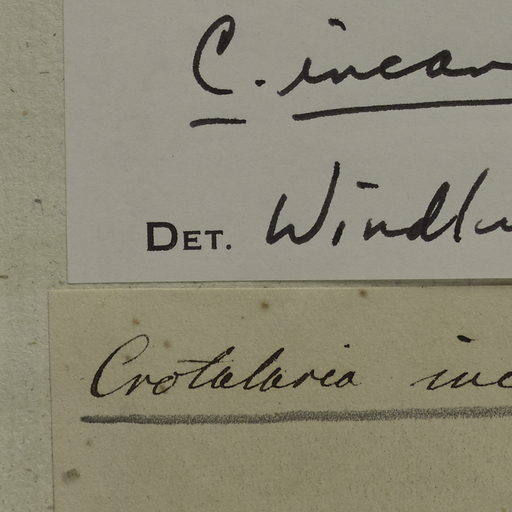 C. incan
DET. Windl
Crotalaria inc